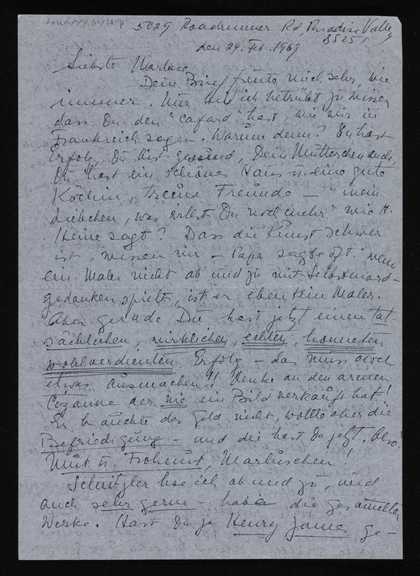 5029 Roadrunner Rd Paradise Valley
85251
den 29. Feb. 1969
Liebste Marlene,
Dein Brief freute mich sehr, wie
immer. Nur bin ich betrübt zu wissen
dass Du den "cafard" hast, wie wir in
Frankreich sagen. Warum denn? Du hast
Erfolg, Du bist gesund, Dein Mütterchen auch,
Du hast ein schönes Haus und eine gute
Köchin, treue Freunde — "mein
Liebchen, was willst Du noch mehr" wie H.
Heine sagt? Dass die Kunst schwer
ist, wissen wir — Papa sagte oft "wenn
ein Maler nicht ab und zu mit Selbstmord-
gedanken spielt, ist er eben kein Maler.
Aber gerade Du hast jetzt einen tat
sächlichen, wirklichen, echten, honneten
wohlverdienten Erfolg — das muss doch
etwas ausmachen!! Denke an den armen
Cézanne der nie ein Bild verkauft hat!
Er brauchte das Geld nicht, wollte aber die
Befriedigung — und die hast Du jetzt. Also
Mut u. Frohmut, Marlenchen!
Schnitzler lese ich ab und zu, und
auch sehr gerne — habe die gesammelten
Werke. Hast Du je Henry James ge-